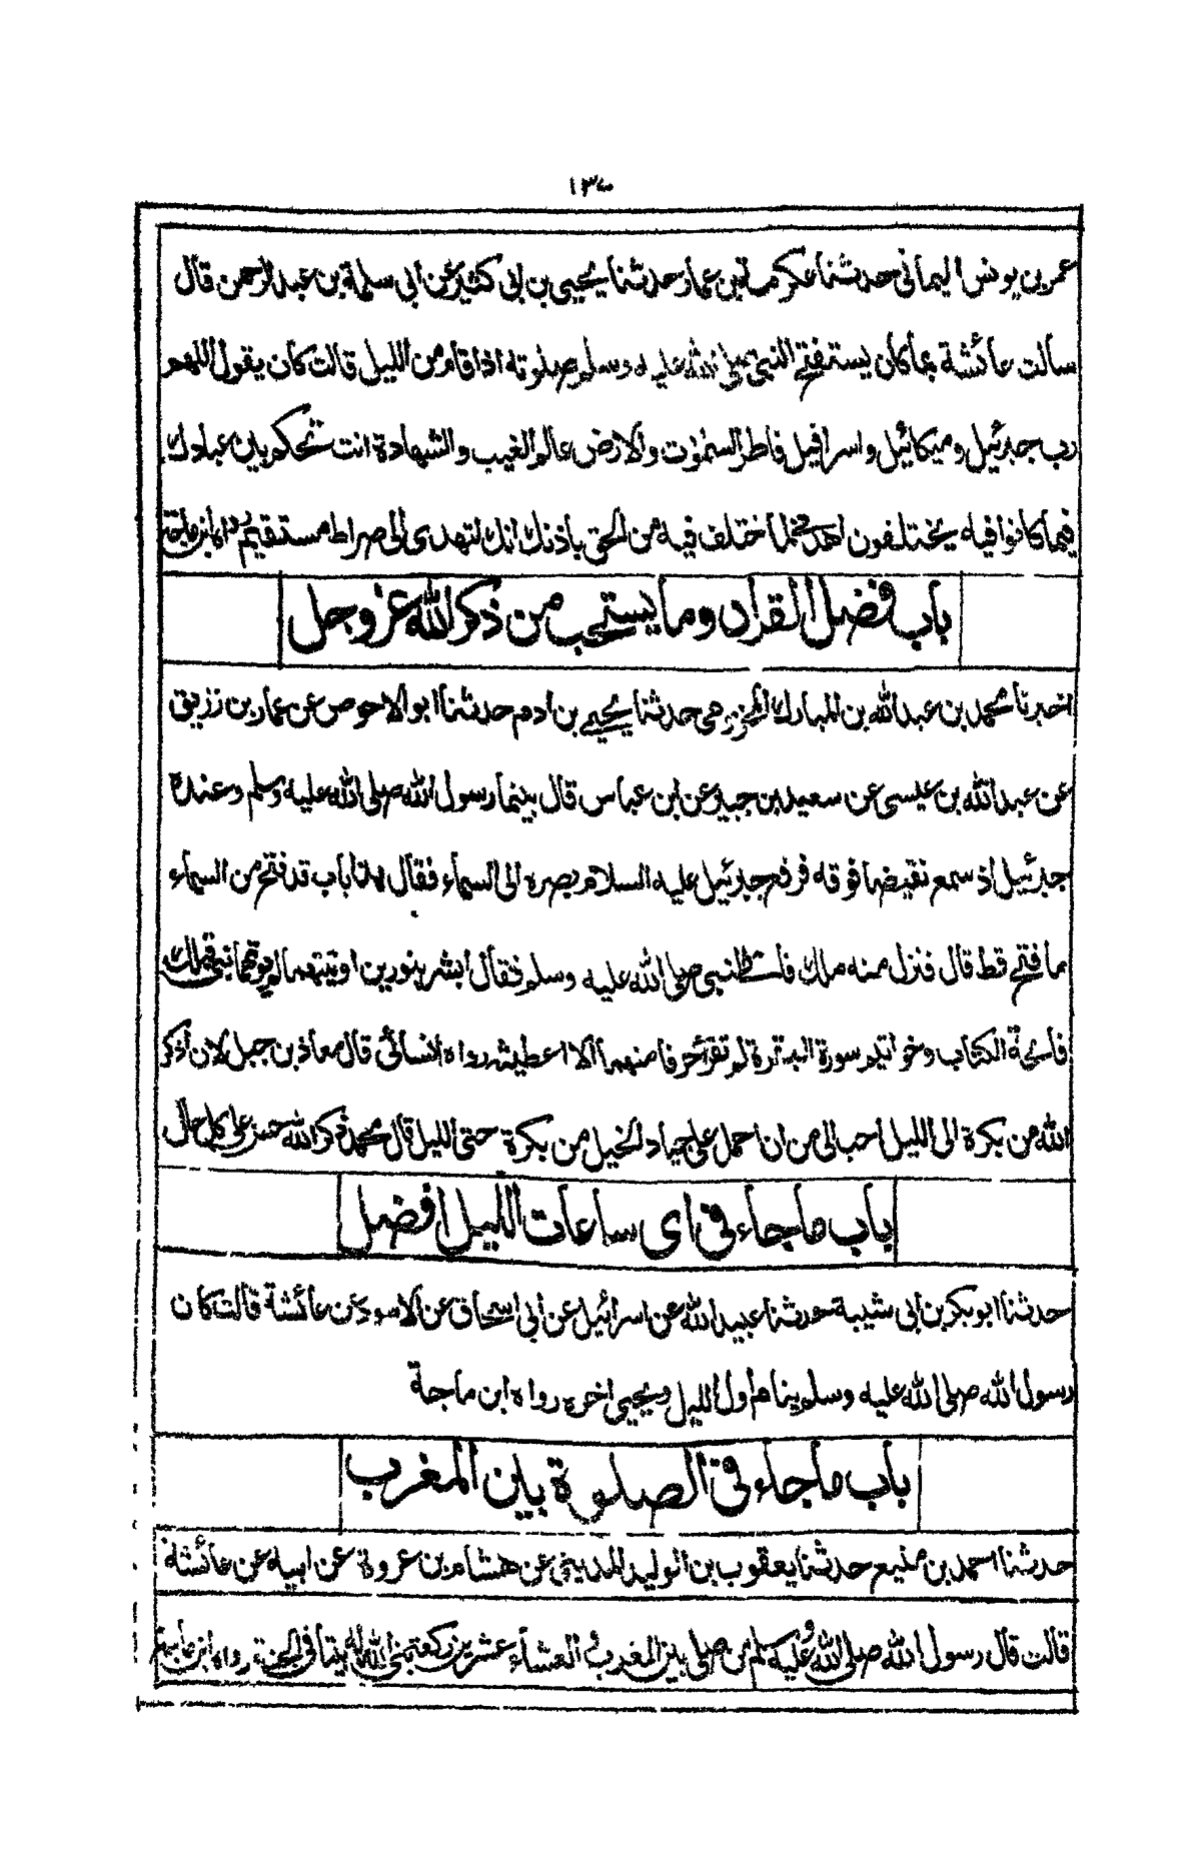 عمر بن يونس اليماني حدثنا عكرمة بن عمار حدثنا يحيى بن ابى كثير عن ابي سلمة بن عبد الرحمن قال
سالت عائشة بما كان يستفتح النبي صلى الله عليه وسلم صلوته اذا قام من الليل قالت كان يقول اللهم
رب جبرئيل وميكائيل واسرافيل فاطر السموت والارض عالم الغيب والشهادة انت تحكم بين عبادك
فيما كانوا فيه يختلفون اهدني لما اختلف فيه من الحق باذنك انك لتهدى الى صراط مستقيم رواه ابن ماجة
باب فضل القران وما يستحب من ذكر الله عز وجل
اخبرنا محمد بن عبد الله بن المبارك المخزومي حدثنا يحيى بن ادم حدثنا ابو الاحوص عن عمار بن زريق
عن عبد الله بن عيسى عن سعيد بن جبير عن ابن عباس قال بينما رسول الله صلى الله عليه وسلم وعنده
جبرئيل اذ سمع نقيضا فوقه فرفع جبرئيل عليه السلام بصره الى السماء فقال هذا باب قد فتح من السماء
ما فتح قط قال فنزل منه ملك فاتى النبي صلى الله عليه وسلم فقال ابشر بنورين اوتيتهما لم يؤتهما نبي قبلك
فاتحة الكتاب وخواتيم سورة البقرة لم تقرأ حرفا منهما الا اعطيته رواه النسائي قال معاذ بن جبل لان اذكر
الله من بكرة الى الليل احب الى من ان احمل على جياد الخيل من بكرة حتى الليل قال محمد ذكر الله حسن على كل حال
باب ما جاء في اى ساعات الليل افضل
حدثنا ابو بكر بن ابى شيبة حدثنا عبيد الله عن اسرائيل عن ابى اسحاق عن الاسود عن عائشة قالت كان
رسول الله صلى الله عليه وسلم ينام اول الليل ويحيى اخره رواه ابن ماجة
باب ما جاء في الصلوة بين المغرب
حدثنا احمد بن منيع حدثنا يعقوب بن الوليد المديني عن هشام بن عروة عن ابيه عن عائشة
قالت قال رسول الله صلى الله عليه وسلم من صلى بين المغرب والعشاء عشرين ركعة بنى الله له بيتا في الجنة رواه ابن ماجة